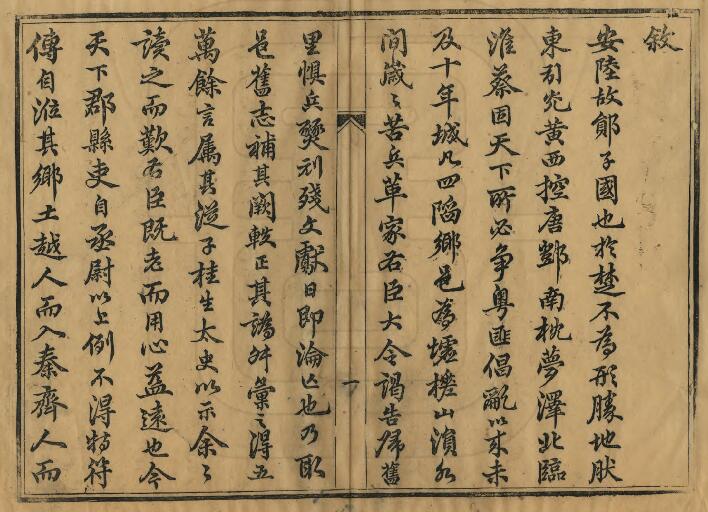 敘
安陸故鄖子國也於楚不為形勝地肰
東引光黃西控唐鄧南枕夢澤北臨
淮蔡固天下所必爭粵匪倡亂以來未
及十年城凡四陷鄉邑為墟樵山漁水
間歲〻苦兵革家右臣大令謁告歸舊
里惧兵燹刓殘文獻日即淪亡也乃取
邑舊志補其闕軼正其譌舛彙〻得五
萬餘言属其從子桂生太史以示余〻
讀之而歎右臣既老而用心益遠也今
天下郡縣吏自丞尉以上例不得特符
傳自涖其鄉土越人而入秦齊人而